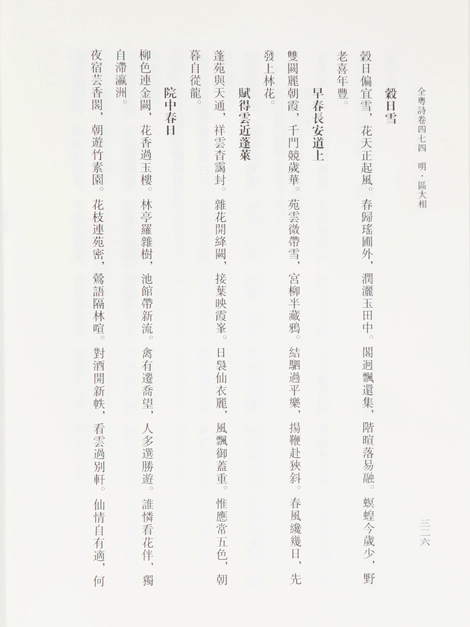 全粵詩卷四七四　明·區大相
三二六
穀日雪
穀日偏宜雪，花天正起風。春歸瑤圃外，潤灑玉田中。閣迥飄還集，階暄落易融。螟蝗今歲少，野
老喜年豐。
早春長安道上
雙闕麗朝霞，千門競歲華。苑雲微帶雪，宮柳半藏鴉。結駟過平樂，揚鞭赴狹斜。春風纔幾日，先
發上林花。
賦得雲近蓬萊
蓬苑與天通，祥雲杳靄封。雜花開絳闕，接葉映霞峯。日裊仙衣麗，風飄御蓋重。惟應常五色，朝
暮自從龍。
院中春日
柳色連金闕，花香過玉樓。林亭羅雜樹，池館帶新流。禽有遷喬望，人多選勝遊。誰憐看花伴，獨
自滯瀛洲。
夜宿芸香閣，朝遊竹素園。花枝連苑密，鶯語隔林喧。對酒開新帙，看雲過別軒。仙情自有適，何